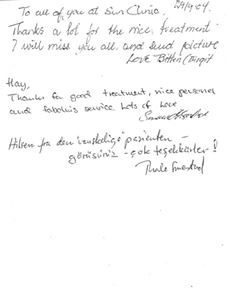 To all of you at Sun Clinic.
Thanks a lot for the nice treatment
I will miss you all and send picture
Love Birgit
Hay,
Thanks for good treatment, nice personel
and fabolus service Lots of Love
Hilsen fra den vanskelige pasienten –
görüsürüz – çok teşekkürler!